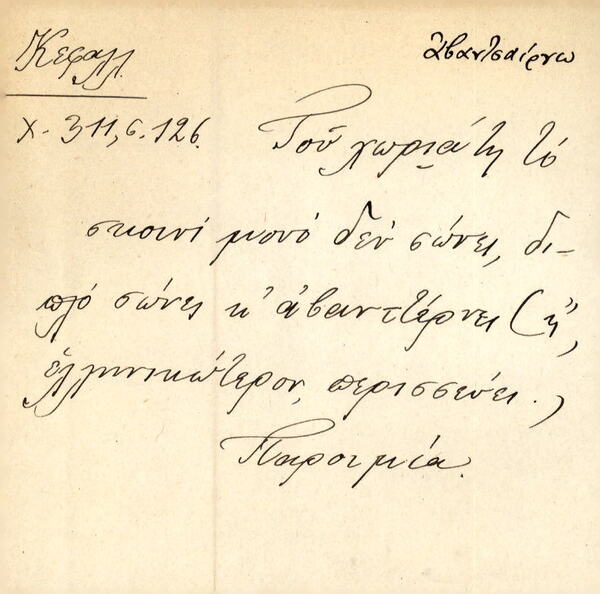 Κεφαλλ.
ἀβαντσαίρνω
χ. 311, σ. 126.
Τοῦ χωριάτη τὸ
σκοινὶ μονὸ δὲν σώνει, δι-
πλὸ σώνει κ' ἀβαντσέρνει (ἤ,
ἑλληνικώτερον, περισσεύει.)
Παροιμία.